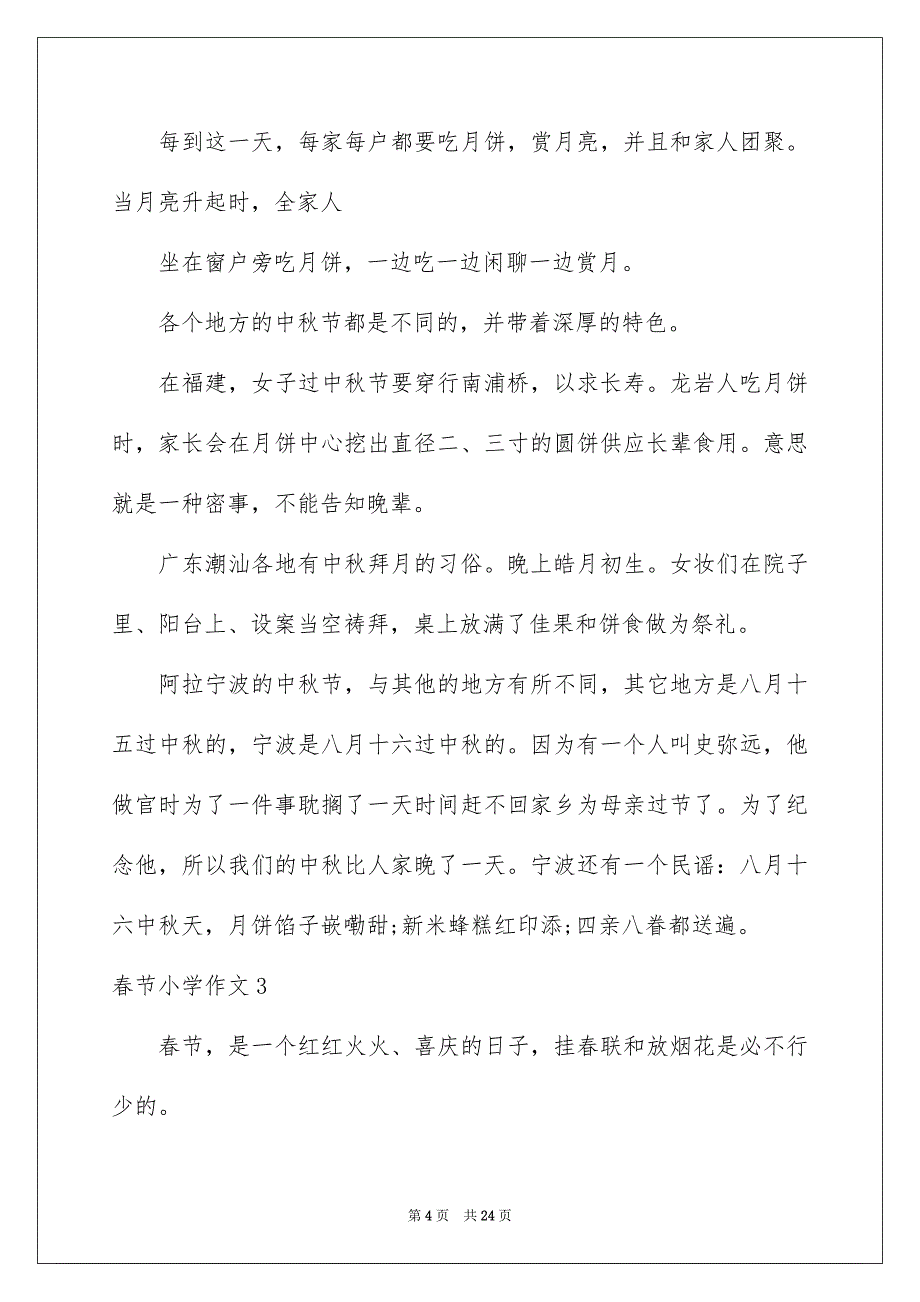 每到这一天，每家每户都要吃月饼，赏月亮，并且和家人团聚。
当月亮升起时，全家人
坐在窗户旁吃月饼，一边吃一边闲聊一边赏月。
各个地方的中秋节都是不同的，并带着深厚的特色。
在福建，女子过中秋节要穿行南浦桥，以求长寿。龙岩人吃月饼
时，家长会在月饼中心挖出直径二、三寸的圆饼供应长辈食用。意思
就是一种密事，不能告知晚辈。
广东潮汕各地有中秋拜月的习俗。晚上皓月初生。女妆们在院子
里、阳台上、设案当空祷拜，桌上放满了佳果和饼食做为祭礼。
阿拉宁波的中秋节，与其他的地方有所不同，其它地方是八月十
五过中秋的，宁波是八月十六过中秋的。因为有一个人叫史弥远，他
做官时为了一件事耽搁了一天时间赶不回家乡为母亲过节了。为了纪
念他，所以我们的中秋比人家晚了一天。宁波还有一个民谣：八月十
六中秋天，月饼馅子嵌嘞甜;新米蜂糕红印添;四亲八眷都送遍。
春节小学作文3
春节，是一个红红火火、喜庆的日子，挂春联和放烟花是必不行
少的。
第4页 共24页